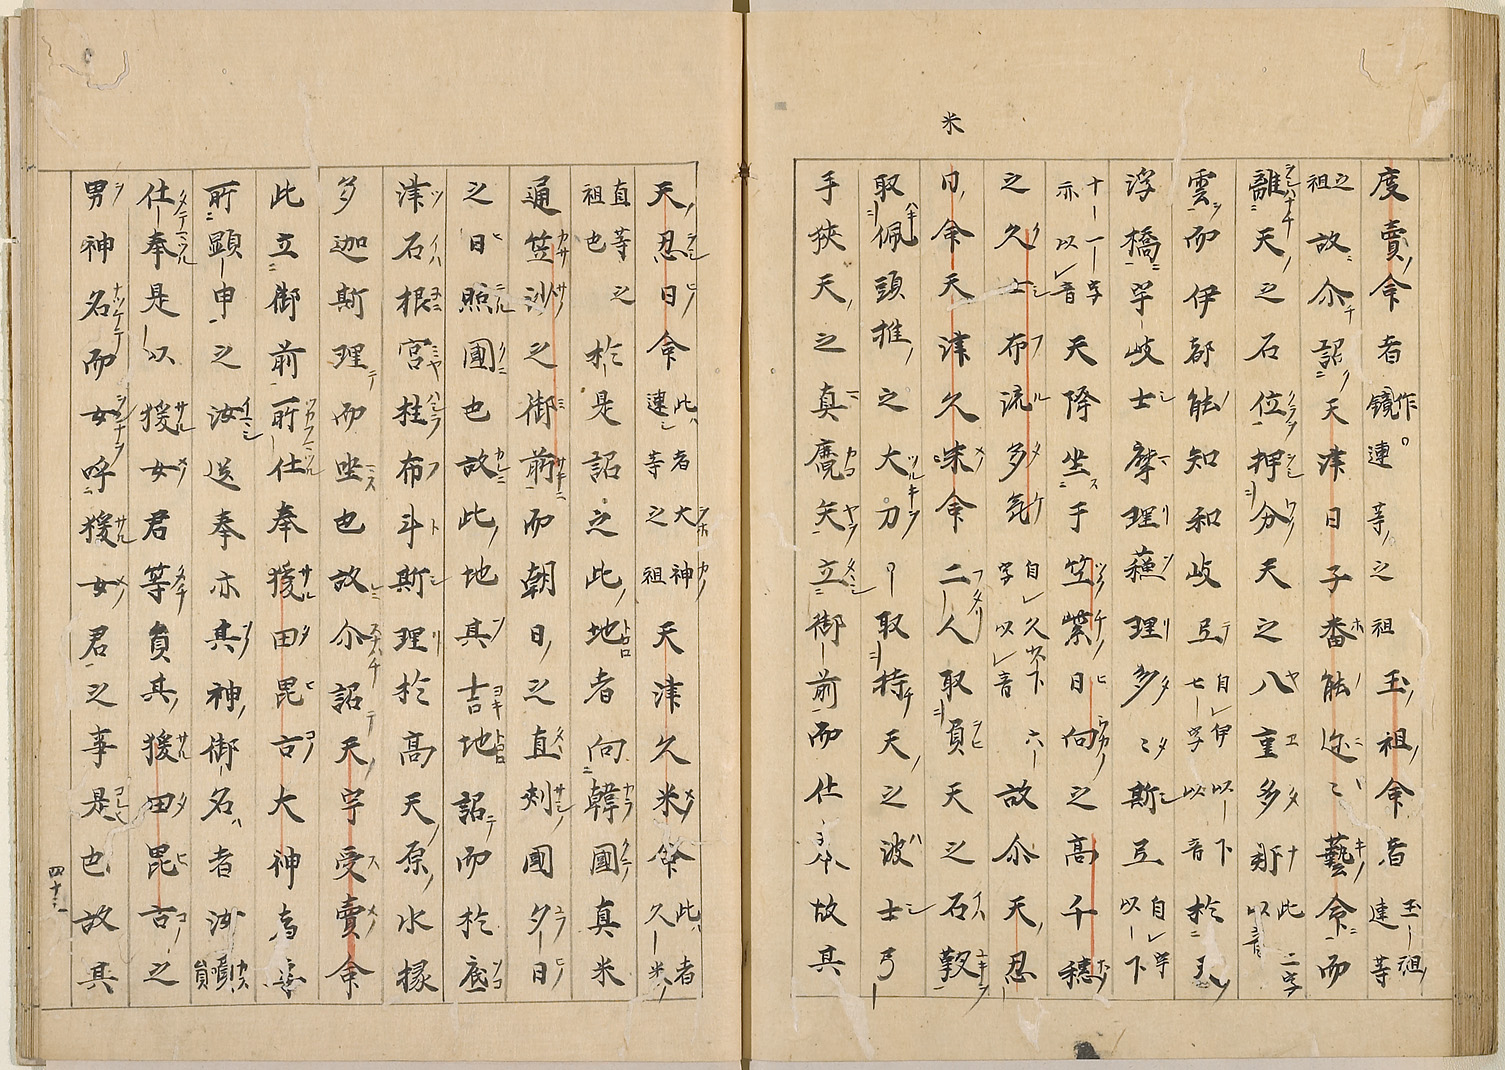 米
度賣命者 作鏡連等之祖 玉祖命者 玉祖連等
之祖 故尒詔天津日子番能迩々藝命而
離天之石位押分天之八重多那 此二字以音
雲而伊都能知和岐弖 自伊以下七字以音 於天
浮橋宇岐士摩理蘓理多々斯弖 自宇以下
十一字亦以音 天降坐于笠紫日向之高千穂
之久士布流多氣 自久以下六字以音 故尒天忍
日命天津久米命二人取負天之石靫
取佩頭推之大刀取持天之波士弓
手挾天之真麑矢立御前而仕奉故其
天忍日命 此者大神連等之祖 天津久米命 此者久米
直等之祖也 於是詔之此地者向韓國真米
通笠沙之御前而朝日之直刾國夕日
之日照國也故此地其吉地詔而於底
津石根宮柱布斗斯理於高天原水椽
多迦斯理而坐也故尒詔天宇受賣命
此立御前所仕奉猨田毘古大神者專
所顯申之汝送奉亦其神御名者汝負
仕奉是以猨女君等負其猨田毘古之
男神名而女呼猨女君之事是也故其
四十二